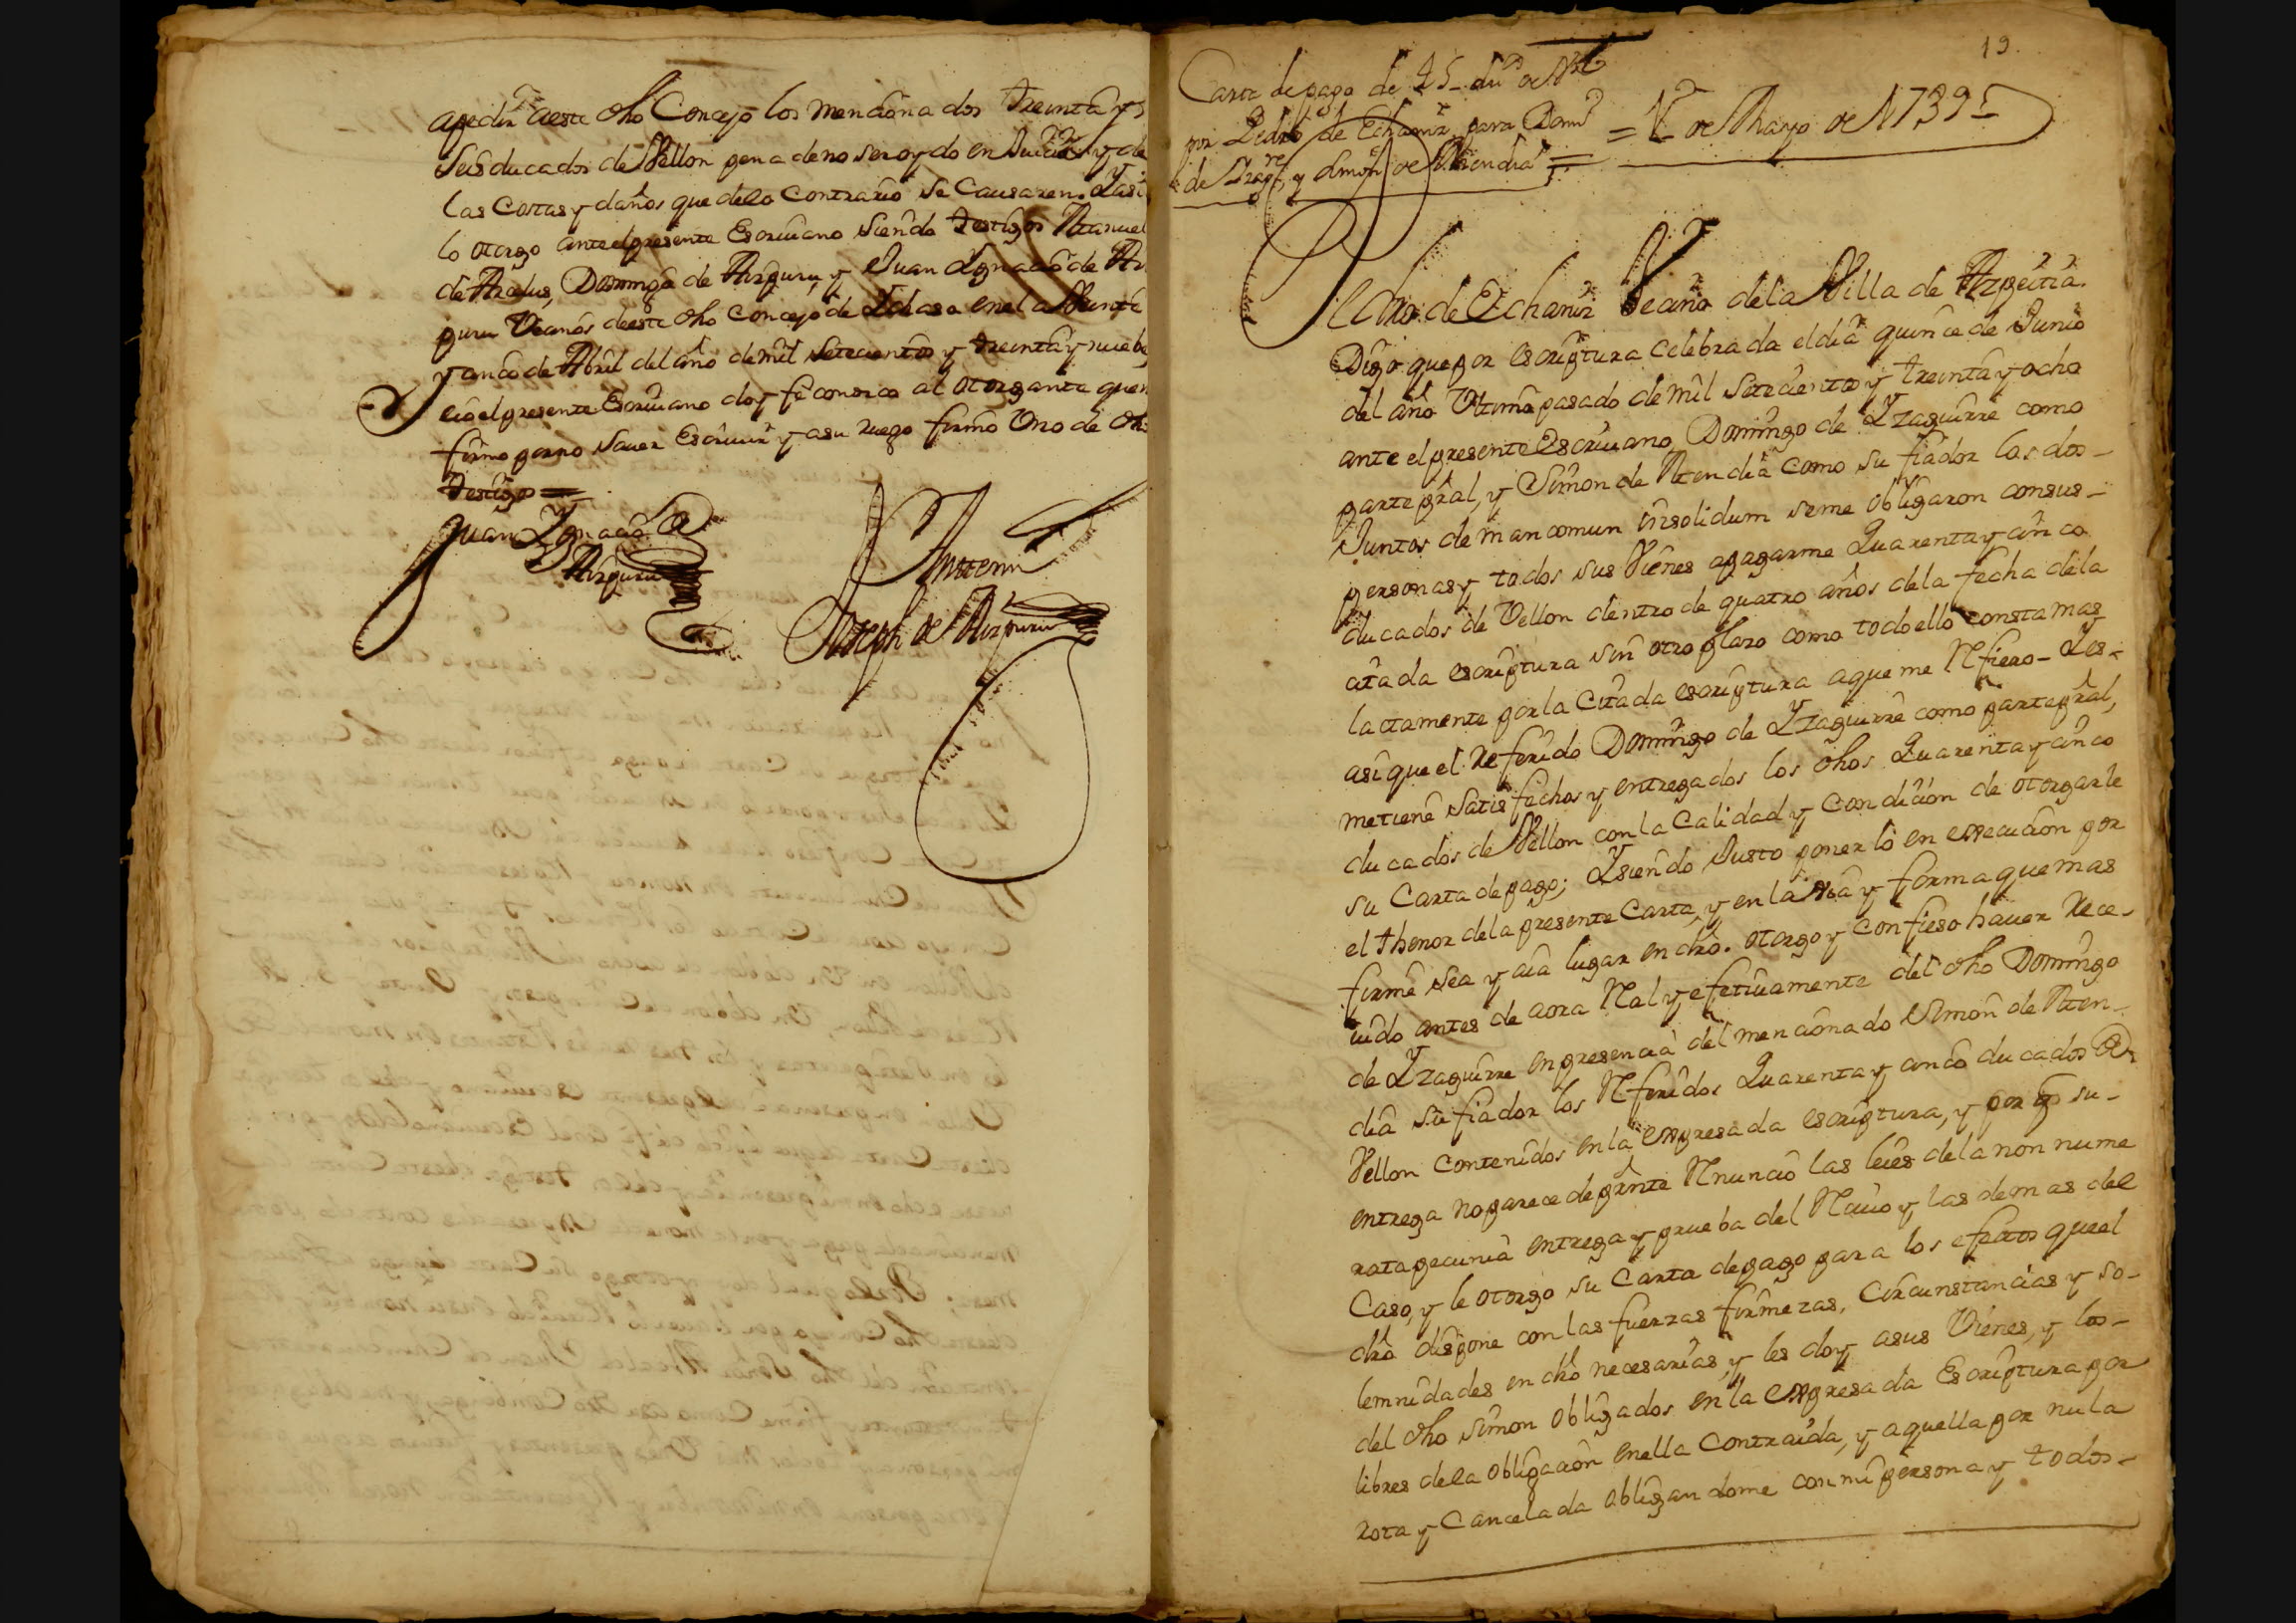 a pedir a este dho Concejo los mencionados treinta y
seis ducados de Vellon pena de no ser oydo en Juicio y de
las costas y daños que delo contrario se causaren. Y asi
lo otorgo ante el presente Escriuano siendo testigos Manuel
de Aizpuru, y Juan Ygnacio de Az
puru Vecinos de este dho Concejo de en el a Veinte
y cinco de Abril del año de mil setecientos y treinta y nuebe,
e io el presente Escriuano doy fe conozco al otorgante quien
firmo por no sauer Escriuir y a su ruego firmo Uno de dhos
testigos =
Juan Ygnacio de
Aizpuru
Ante mi
Joseph de Aizpuru
19.
Carta de pago de 45 duds de Vn
por Pedro de Echaniz para Domo
de Yzagre, y Simon de Atendia =
= 1 de Mayo de 1739
Pedro de Echaniz Vecino de la Villa de Azpeitia.
Digo que por escriptura celebrada el dia quince de Junio
del año Ultimo pasado de mil setecientos y treinta y ocho
ante el presente Escriuano Domingo de Yzaguirre como
parte prãl, y Simon de Atendia como su fiador los dos
Juntos de mancomun insolidum se me obligaron con sus
personas y todos sus Vienes a pagarme Quarenta y cinco
ducados de Vellon dentro de quatro años de la fecha de la
citada escriptura sin otro plazo como todo ello consta mas
lactamente por la Citada escriptura a que me Rfiero - Y es
asi que el Referido Domingo de Yzaguirre como parte prãl,
me tiene satisfechos y entregados los dhos Quarenta y cinco
ducados de Vellon con la Calidad y Condicion de otorgarle
su Carta de pago; Y siendo Justo ponerlo en execucion por
el thenor de la presente Carta, y en la via y forma que mas
firme sea y aia lugar en dro. otorgo y confieso hauer Rece-
uido antes de aora Ral y efetiuamente del dho Domingo
de Yzaguirre en presencia del mencionado Simon de Aten-
dia su fiador los Rferidos Quarenta y cinco ducados de
Vellon contenidos en la expresada escriptura, y por q su
entrega no parece de prnte Rnuncio las leies de la non nume
rata pecunia entrega y prueba del Rciuo y las demas del
Caso, y le otorgo su Carta de pago para los efectos que el
dro dispone con las fuerzas firmezas, Circunstancias y so-
lemnidades en dro necesarias, y les doy a sus Vienes, y los
del dho Simon obligados en la expresada Escriptura por
libres de la obligacion en ella Contraida, y aquella por nula
rota y Cancelada obligandome con mi persona y todos